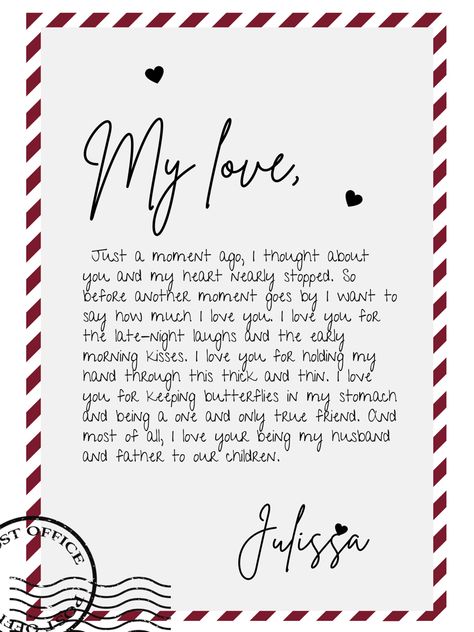 My love,
Just a moment ago, I thought about
you and my heart nearly stopped. So
before another moment goes by I want to
say how much I love you. I love you for
the late-night laughs and the early
morning kisses. I love you for holding my
hand through this thick and thin. I love
you for keeping butterflies in my stomach
and being a one and only true friend. And
most of all, I love your being my husband
and father to our children.
Julissa
ST OFFICE
POST OFFI